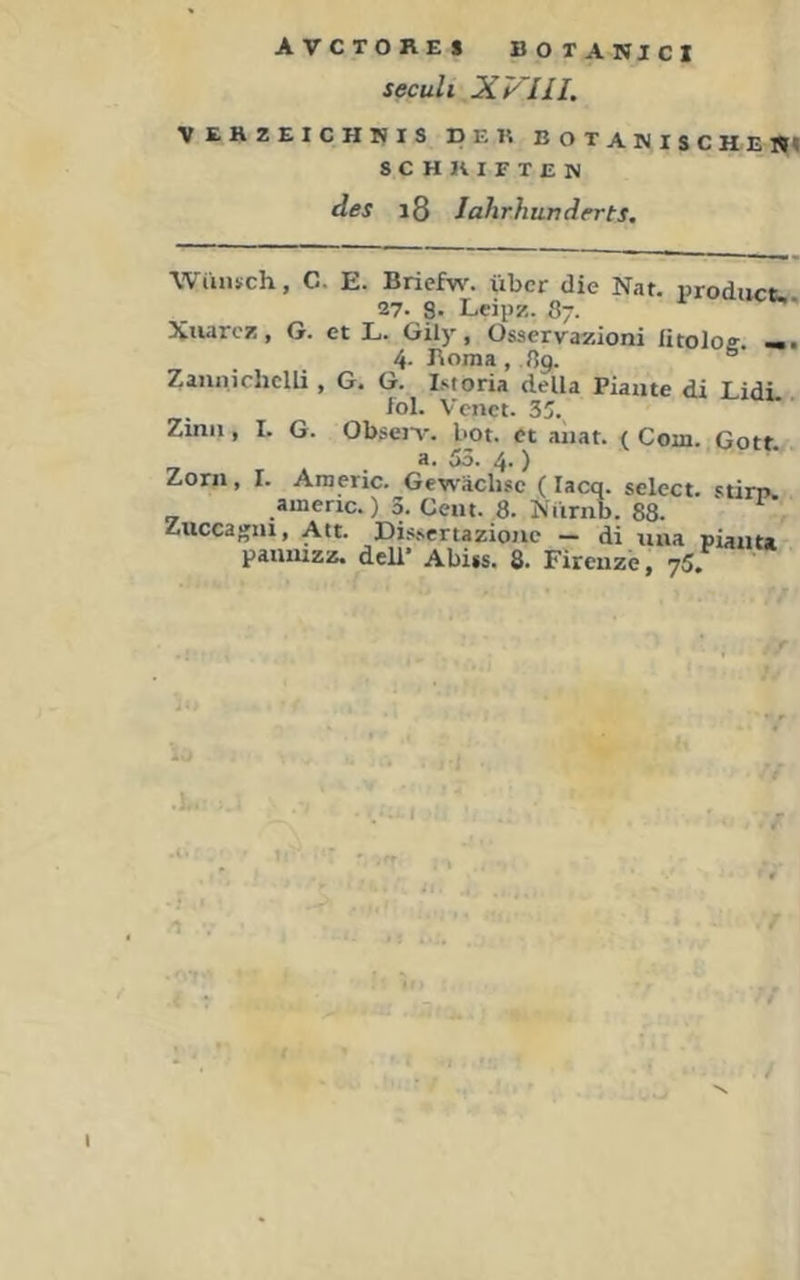 AVCTORES BOTANICI
seculi XVIII.
VERZEICHNIS DER BOTANISCHEN
SCHRIFTEN
des 18 Iahrhunderts.
Wünsch, C. E. Briefw. über die Nat. product.
27. 8. Leipz. 87.
Xuarez, G. et L. Gily, Osservazioni litolog. —.
4. Roma, 89.
Zannichelli, G. G. Istoria della Piante di Lidi.
fol. Venet. 35.
Zinn, I. G. Observ. bot. et anat. (Com. Gott.
a. 53. 4.)
Zorn, I. Americ. Gewächse (Iacq. select. stirp.
americ.) 3. Cent. 8. Nürnb. 88.
Zuccagni, Att. Dissertazione — di una pianta
pannizz. dell' Abiss. 8. Firenze, 75.